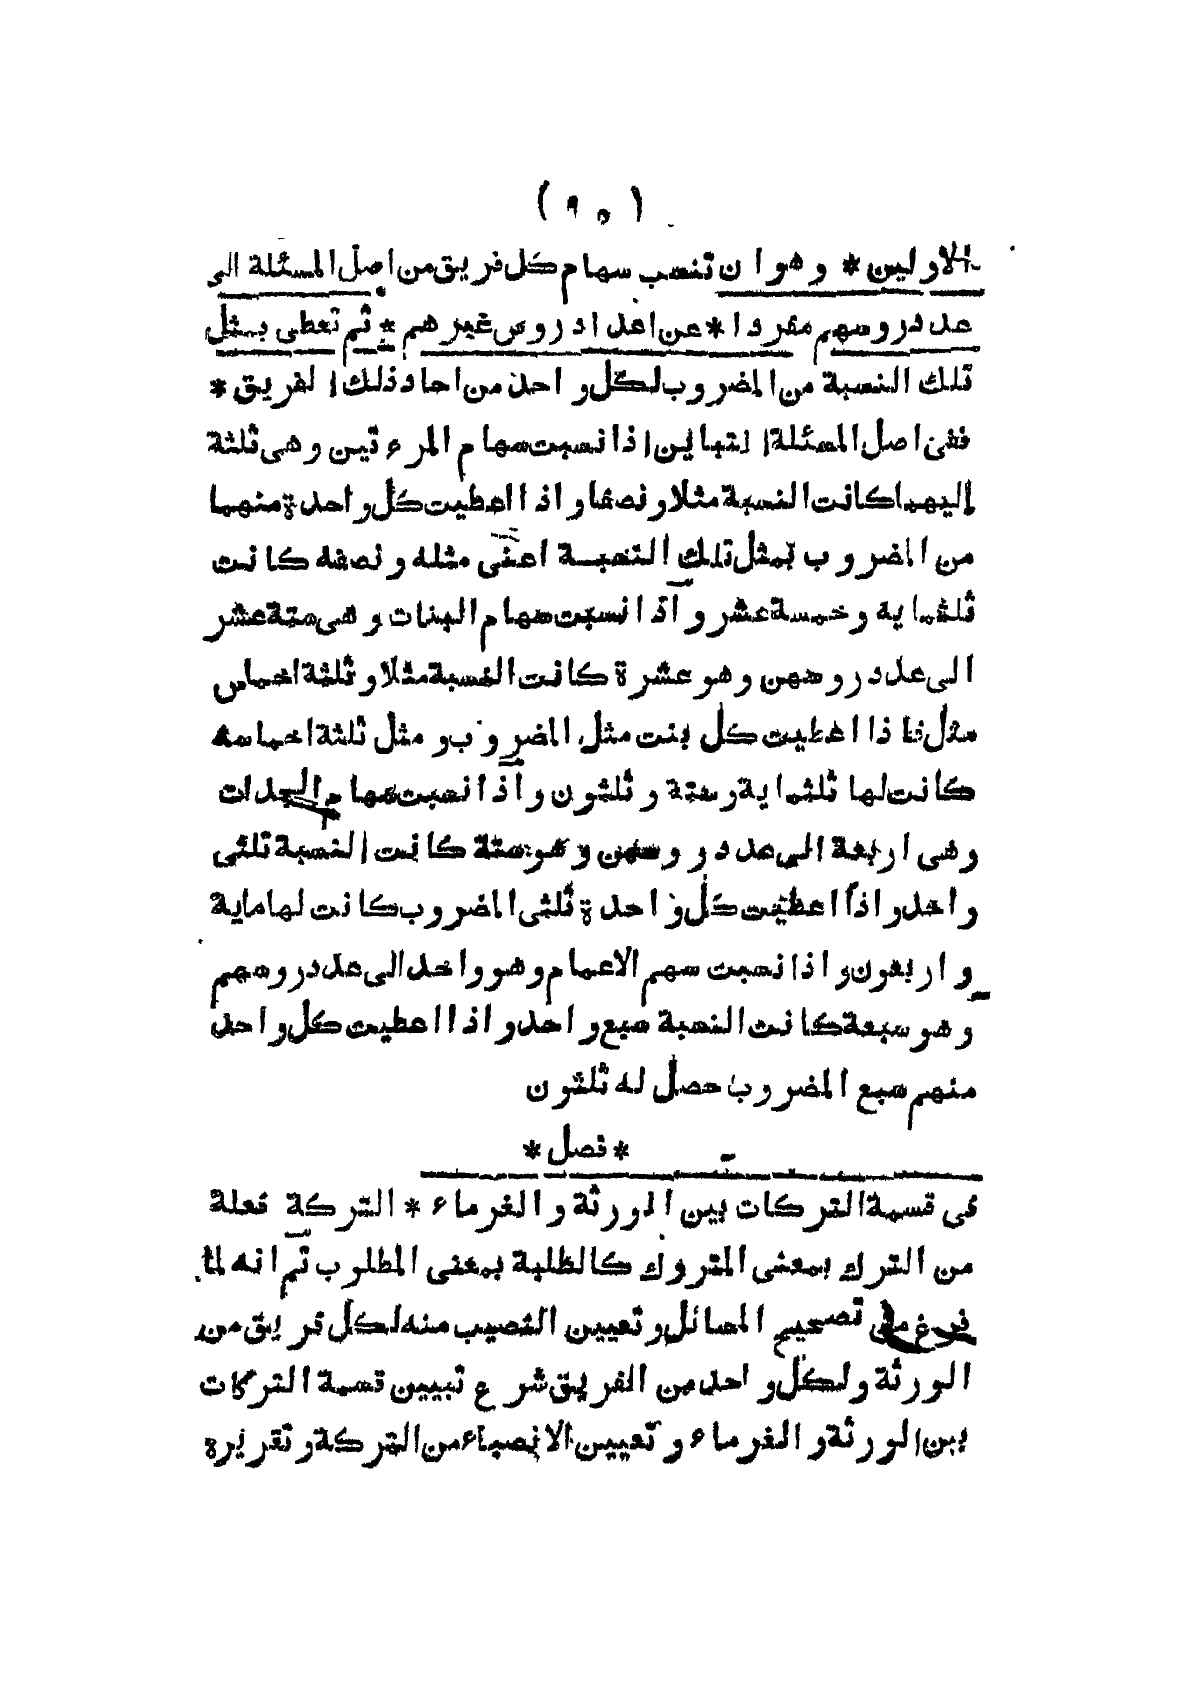 ( ٩٥ )
الاولين * وهو ان تنسب سهام كل فريق من اصل المسئلة الى
عدد روسهم مفردا * عن اعداد روس غيرهم * ثم تعطى بمثل
تلك النسبة من المضروب لكل واحد من احاد ذلك الفريق *
ففى اصل المسئلة التباين اذا نسبت سهام المرءتين وهى ثلثة
اليهما كانت النسبة مثلا ونصفا واذا اعطيت كل واحدة منهما
من المضروب بمثل تلك النسبة اعنى مثله ونصفه كانت
ثلثماية وخمسة عشر واذا نسبت سهام البنات وهى ستة عشر
الى عدد روسهن وهو عشرة كانت النسبة مثلا وثلثة اخماس
مثل فاذا اعطيت كل بنت مثل المضروب و مثل ثلثة اخماسه
كانت لها ثلثماية وستة وثلثون واذا نسبت سهام الجدات
وهى اربعة الى عدد روسهن وهو ستة كانت النسبة ثلثى
واحد واذا اعطيت كل واحدة ثلثى المضروب كانت لها ماية
واربعون واذا نسبت سهم الاعمام وهو واحد الى عدد روسهم
وهو سبعة كانت النسبة سبع واحد واذا اعطيت كل واحد
منهم سبع المضروب حصل له ثلثون
* فصل *
فى قسمة التركات بين الورثة والغرماء * التركة فعلة
من الترك بمعنى المتروك كالطلبة بمعنى المطلوب ثم انه لما
فرغ من تصحيح المسائل وتعيين النصيب منه لكل فريق من
الورثة ولكل واحد من الفريق شرع تبيين قسمة التركات
بين الورثة والغرماء وتعيين الانصباء من التركة وتقريره